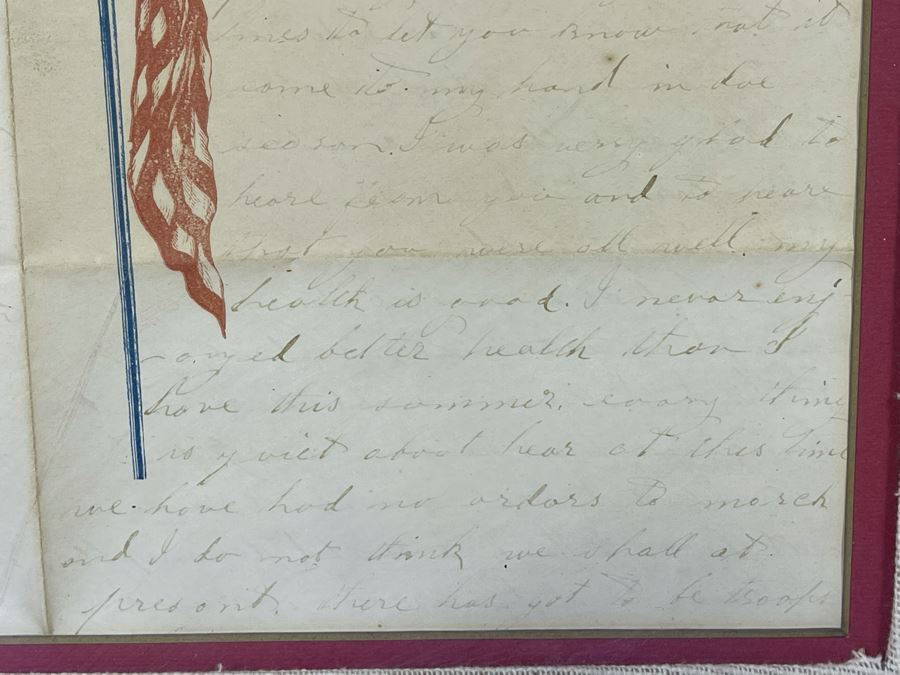 lines to let you know that it
come to my hand in doe
season I was very glad to
heare from you and to heare
that you were all well my
health is good. I never enj-
oayed better health than I
have this summer. evary time
is qviet abovt hear at this time
we have had no ordors to march
and I do not think we shall at
presont. there has got to be troops